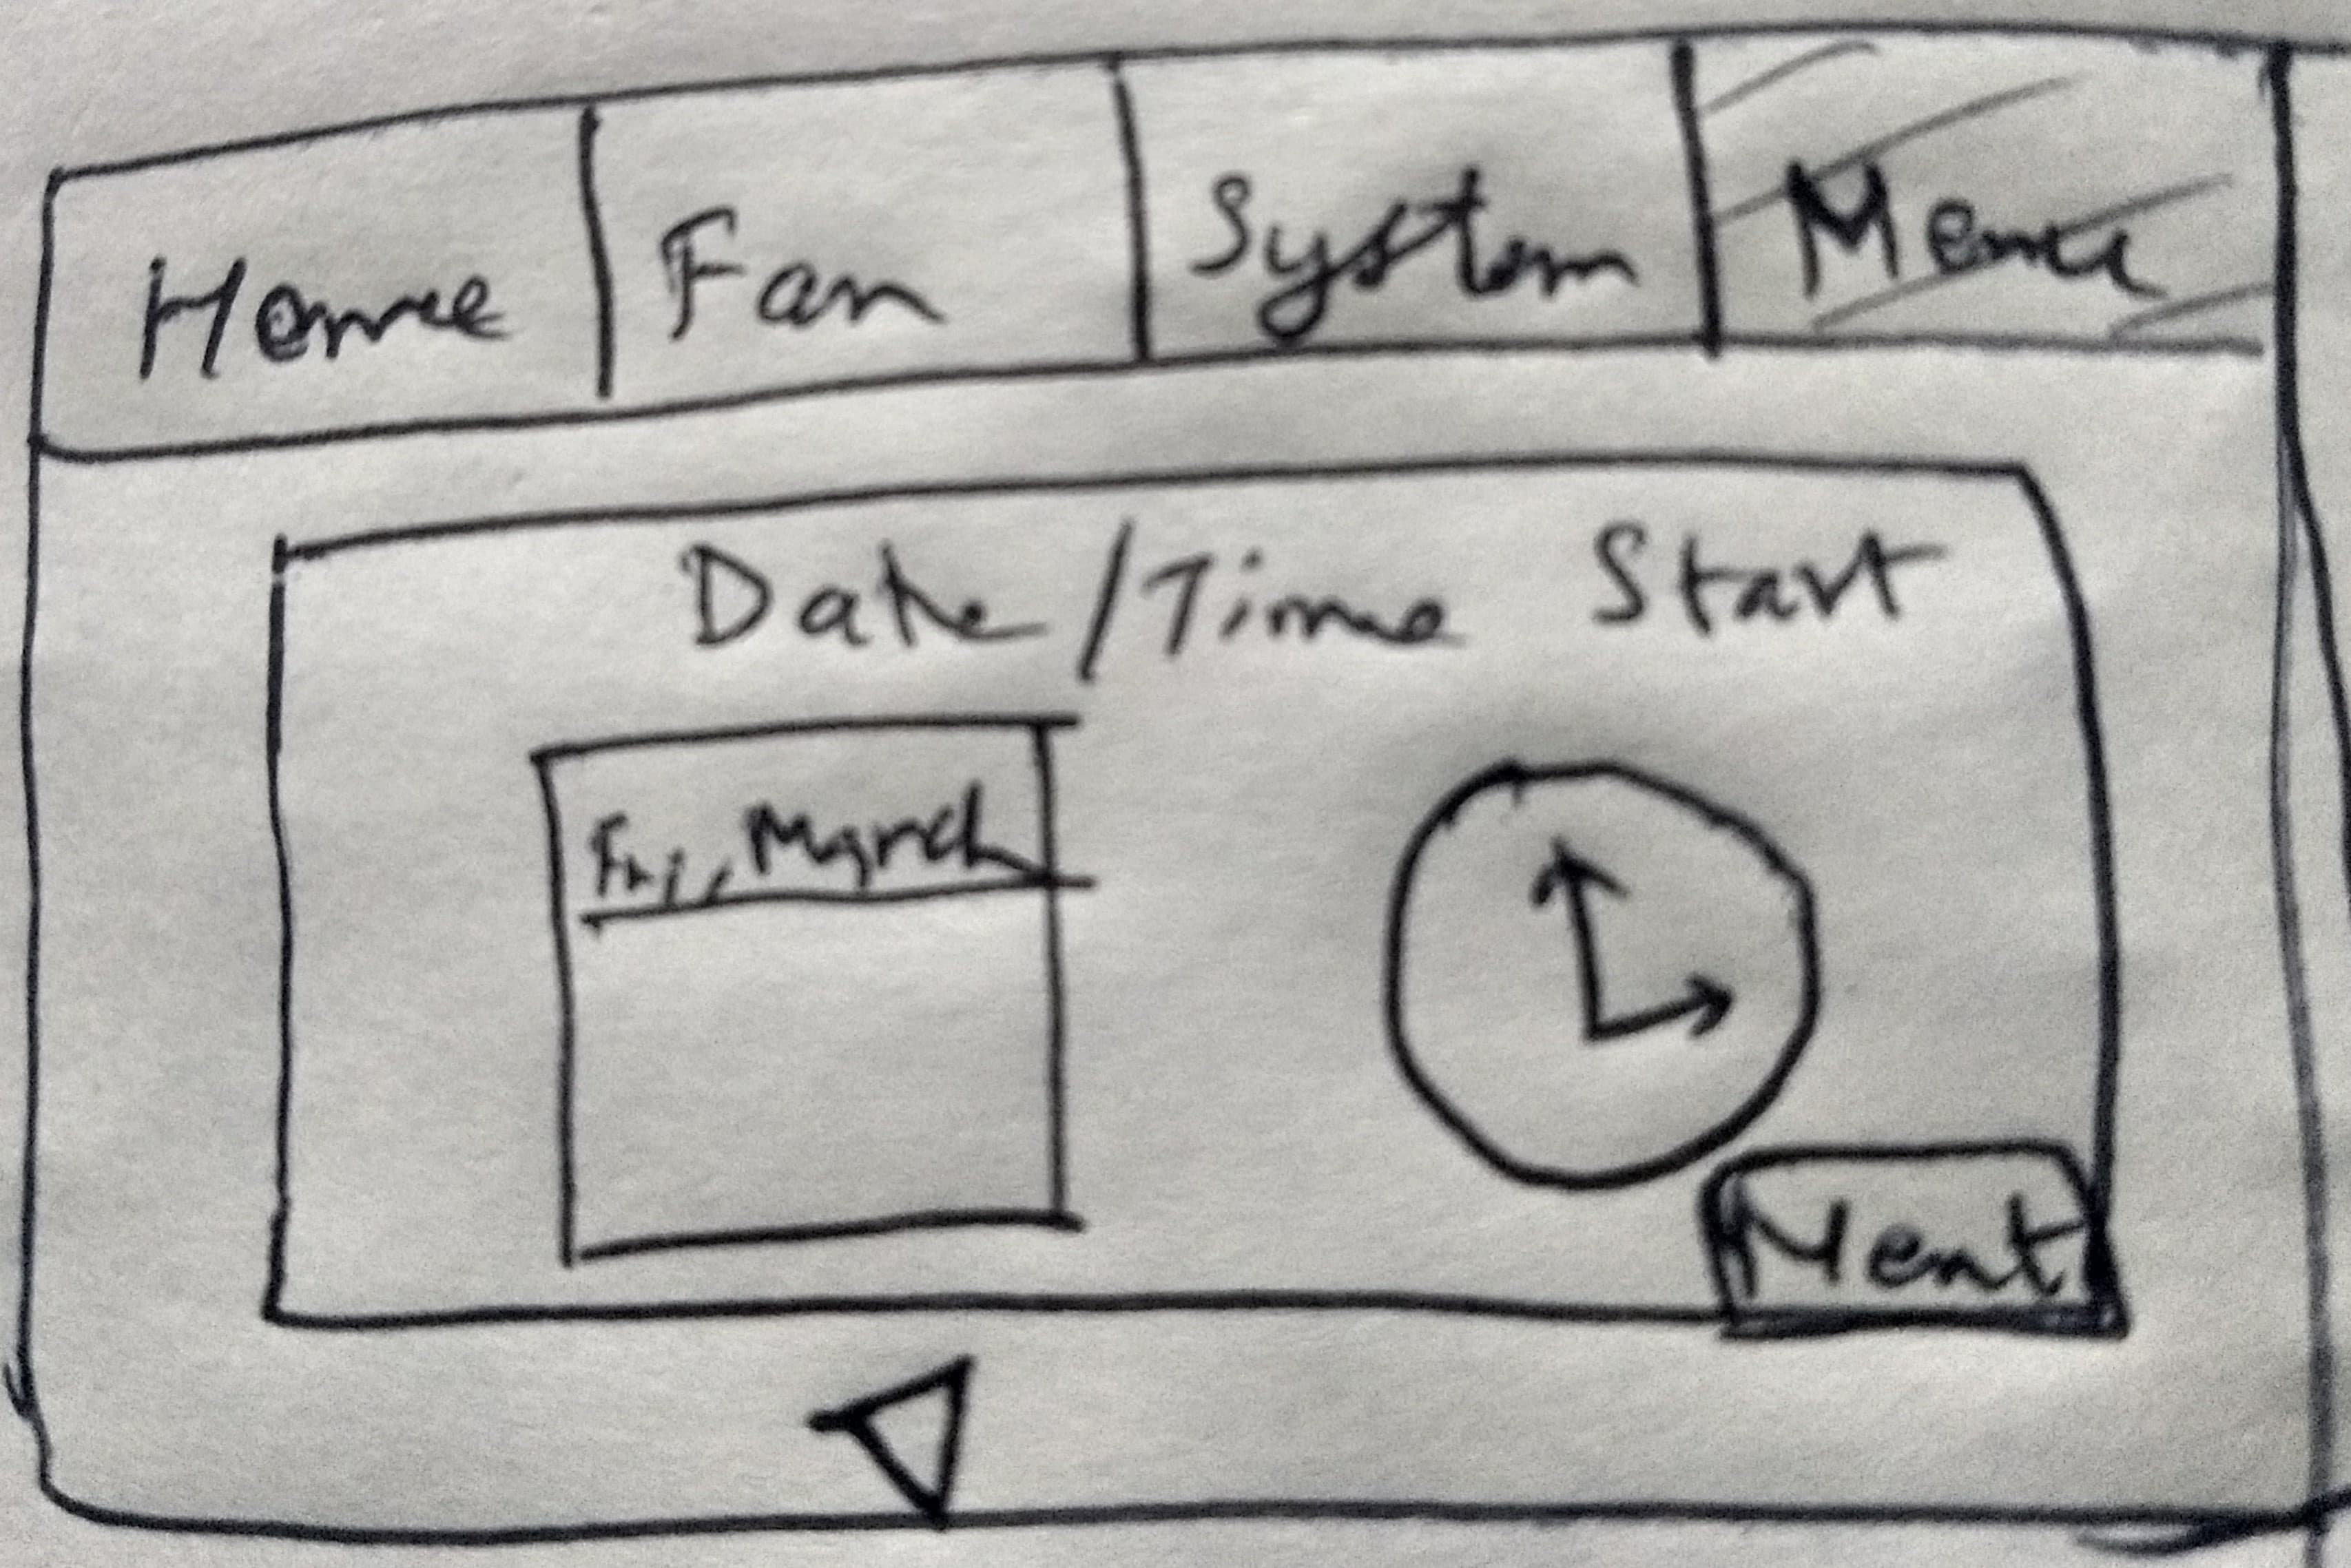 Home Fan System Menu
Date/Time Start
Fri, March
Next